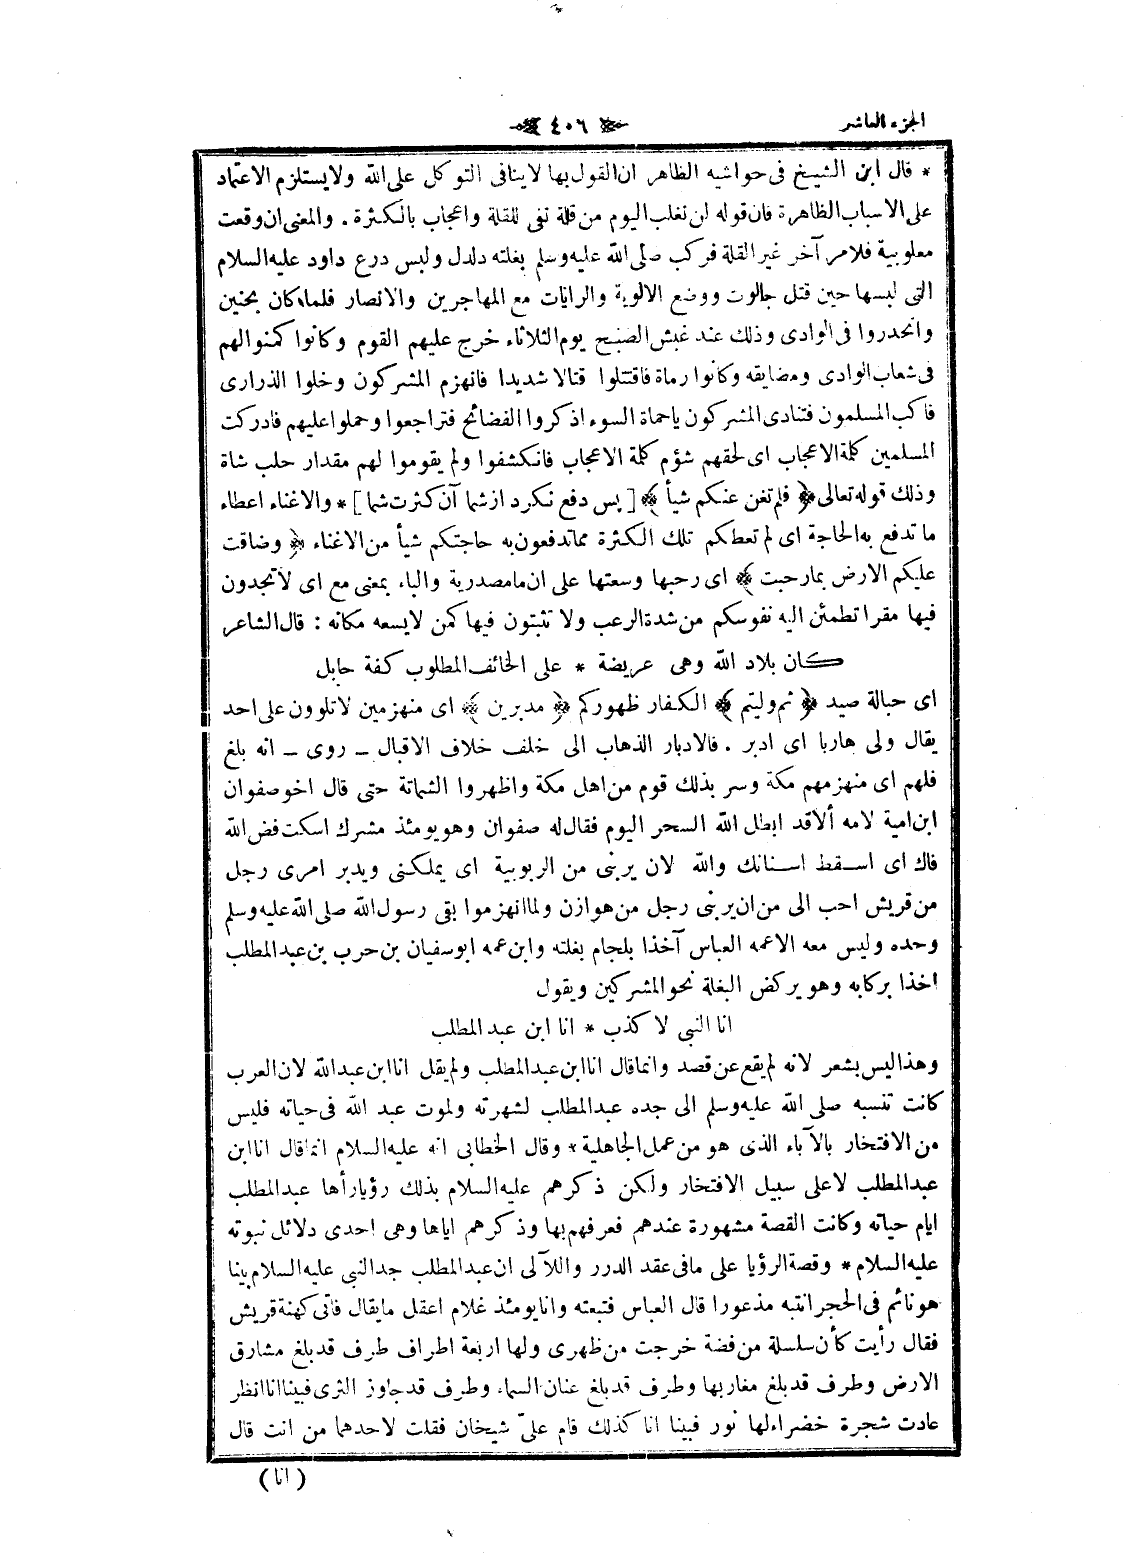 الجزء العاشر
٤٠٦
* قال ابن الشيخ فى حواشيه الظاهر ان القول بها لاينافى التوكل على الله ولايستلزم الاعتماد
على الاسباب الظاهرة فان قوله لن نغلب اليوم من قلة نفى للقلة واعجاب بالكثرة . والمعنى ان وقعت
مغلوبية فلامر آخر غير القلة فركب صلى الله عليه وسلم بغلته دلدل ولبس درع داود عليه السلام
التى لبسها حين قتل جالوت ووضع الالوية والرايات مع المهاجرين والانصار فلما كان بحنين
وانحدروا فى الوادى وذلك عند غبش الصبح يوم الثلاثاء خرج عليهم القوم وكانوا كمنوا لهم
فى شعاب الوادى ومضايقه وكانوا رماة فاقتتلوا قتالا شديدا فانهزم المشركون وخلوا الذرارى
فاكب المسلمون فتنادى المشركون ياحماة السوء اذكروا الفضائح فتراجعوا وحملوا عليهم فادركت
المسلمين كلمة الاعجاب اى لحقهم شؤم كلمة الاعجاب فانكشفوا ولم يقوموا لهم مقدار حلب شاة
وذلك قوله تعالى ﴿ فلم تغن عنكم شيأ ﴾ [ پس دفع نكرد ازشما آن كثرت شما ] * والاغناء اعطاء
ماتدفع به الحاجة اى لم تعطكم تلك الكثرة مماتدفعون به حاجتكم شيأ من الاغناء ﴿ وضاقت
عليكم الارض بمارحبت ﴾ اى رحبها وسعتها على ان مامصدرية والباء بمعنى مع اى لاتجدون
فيها مقرا تطمئن اليه نفوسكم من شدة الرعب ولا تثبتون فيها كمن لايسعه مكانه : قال الشاعر
كان بلاد الله وهى عريضة * على الخائف المطلوب كفة حابل
اى حبالة صيد ﴿ ثم وليتم ﴾ الكفار ظهوركم ﴿ مدبرين ﴾ اى منهزمين لاتلوون على احد
يقال ولى هاربا اى ادبر . فالادبار الذهاب الى خلف خلاف الاقبال ـ روى ـ انه بلغ
فلهم اى منهزمهم مكة وسر بذلك قوم من اهل مكة واظهروا الشماتة حتى قال اخو صفوان
ابن امية لامه ألاقد ابطل الله السحر اليوم فقال له صفوان وهو يومئذ مشرك اسكت فض الله
فاك اى اسقط اسنانك والله لان يربنى من الربوبية اى يملكنى ويدبر امرى رجل
من قريش احب الى من ان يربنى رجل من هوازن ولما انهزموا بقى رسول الله صلى الله عليه وسلم
وحده وليس معه الاعمه العباس آخذا بلجام بغلته وابن عمه ابوسفيان بن حرب بن عبد المطلب
اخذا بركابه وهو يركض البغلة نحو المشركين ويقول
انا النبى لا كذب * انا ابن عبد المطلب
وهذا ليس بشعر لانه لم يقع عن قصد وانما قال انا ابن عبد المطلب ولم يقل انا ابن عبد الله لان العرب
كانت تنسبه صلى الله عليه وسلم الى جده عبد المطلب لشهرته ولموت عبد الله فى حياته فليس
من الافتخار بالآباء الذى هو من عمل الجاهلية * وقال الخطابى انه عليه السلام انما قال انا ابن
عبد المطلب لاعلى سبيل الافتخار ولكن ذكرهم عليه السلام بذلك رؤيا رأها عبد المطلب
ايام حياته وكانت القصة مشهورة عندهم فعرفهم بها وذكرهم اياها وهى احدى دلائل نبوته
عليه السلام * وقصة الرؤيا على مافى عقد الدرر واللآلى ان عبد المطلب جد النبى عليه السلام بينا
هو نائم فى الحجر انتبه مذعورا قال العباس فتبعته وانا يومئذ غلام اعقل مايقال فاتى كهنة قريش
فقال رأيت كأن سلسلة من فضة خرجت من ظهرى ولها اربعة اطراف طرف قد بلغ مشارق
الارض وطرف قد بلغ مغاربها وطرف قد بلغ عنان السماء وطرف قد جاوز الثرى فبينا انا انظر
عادت شجرة خضراء لها نور فبينا انا كذلك قام علىّ شيخان فقلت لاحدهما من انت قال
( انا )